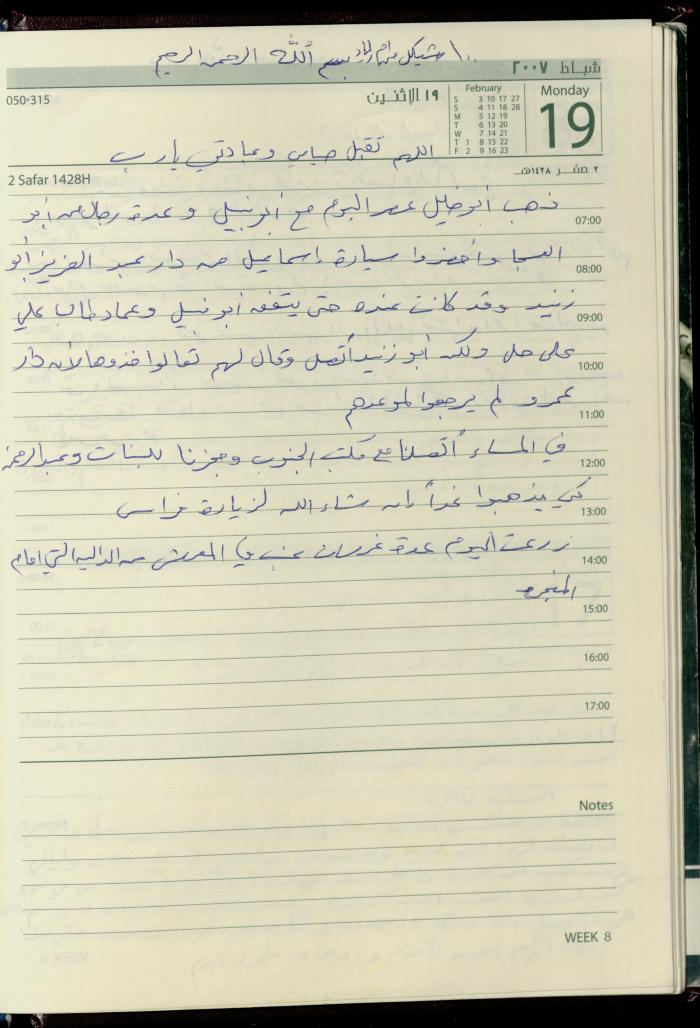 ١٠٠ شيكل من ام زياد بسم الله الرحمن الرحيم
شباط ٢٠٠٧
050-315
١٩ الإثنين
February
S 3 10 17 27
S 4 11 18 28
M 5 12 19
T 6 13 20
W 7 14 21
T 1 8 15 22
F 2 9 16 23
Monday
19
اللهم تقبل صيامي وعبادتي يا رب
2 Safar 1428H
٢ صفر ١٤٢٨هـ
ذهب أبو خليل عصر اليوم مع أبو نبيل وعدة رجال من أبو
07:00
العسجا وأحضروا سيارة إسماعيل من دار عبد العزيز أبو
08:00
زنيد وقد كانت عنده حتى يتفق أبو نبيل وعماد طالب علي
09:00
على حل ولكن أبو زنيد أتصل وقال لهم تعالوا خذوها لأن دار
10:00
عمرو لم يرجعوا لموعدهم
11:00
في المساء أتصلنا مع مكتب الجنوب وحجزنا للبنات وعبد الرحمن
12:00
كي يذهبوا غداً إن شاء الله لزيارة فراس
13:00
زرعت اليوم عدة غرسات عنب في المعرش من الدالية التي امام
14:00
المنجره
15:00
16:00
17:00
Notes
WEEK 8